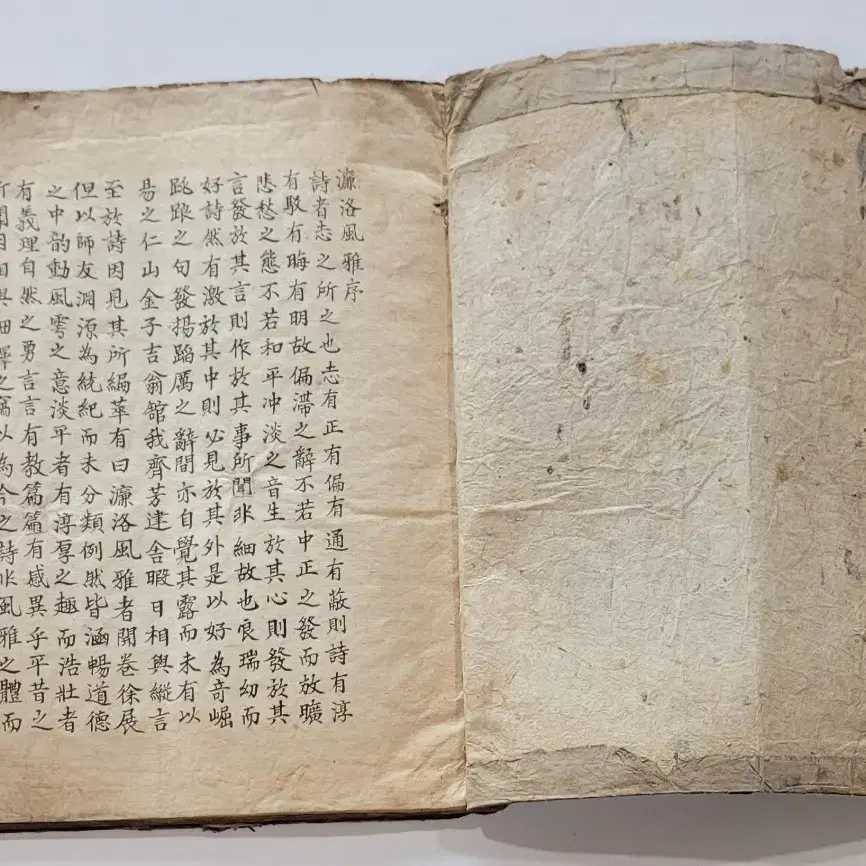 濂洛風雅序
詩者志之所之也志有正有偏有通有蔽則詩有淳
有駁有晦有明故偏滯之辭不若中正之發而放曠
悲愁之態不若和平冲淡之音生於其心則發於其
言發於其言則作於其事所聞非細故也良瑞幼而
好詩然有激於其中則必見於其外是以好為奇崛
跳踉之句發揚蹈厲之辭間亦自覺其露而未有以
易之仁山金子吉翁舘我齊芳建舎暇日相與縱言
至於詩因見其所編萃有曰濂洛風雅者開卷徐展
但以師友淵源為統紀而未分類例然皆涵暢道德
之中韵動風雩之意淡平者有淳厚之趣而浩壯者
有義理自然之勇言言有教篇篇有感異乎平昔之
所聞因相與細繹之竊以為今之詩非風雅之體而